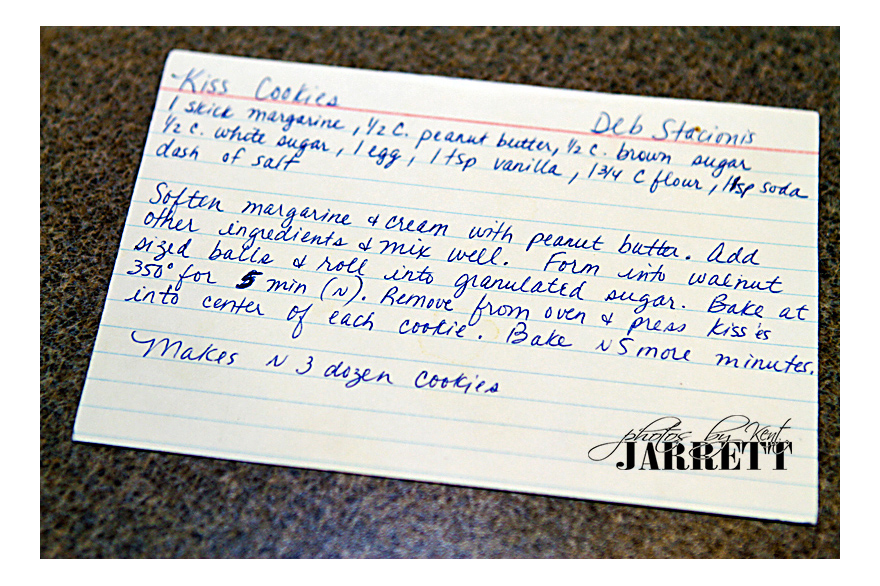 Kiss Cookies
Deb Stacionis
1 stick margarine, 1/2 c. peanut butter, 1/2 c. brown sugar
1/2 c. white sugar, 1 egg, 1 tsp vanilla, 1 3/4 c flour, 1 tsp soda
dash of salt
Soften margarine & cream with peanut butter. Add
other ingredients & mix well. Form into walnut
sized balls & roll into granulated sugar. Bake at
350° for 5 min (~). Remove from oven & press kiss'es
into center of each cookie. Bake ~ 5 more minutes.
Makes ~ 3 dozen cookies
photos by Kent
JARRETT